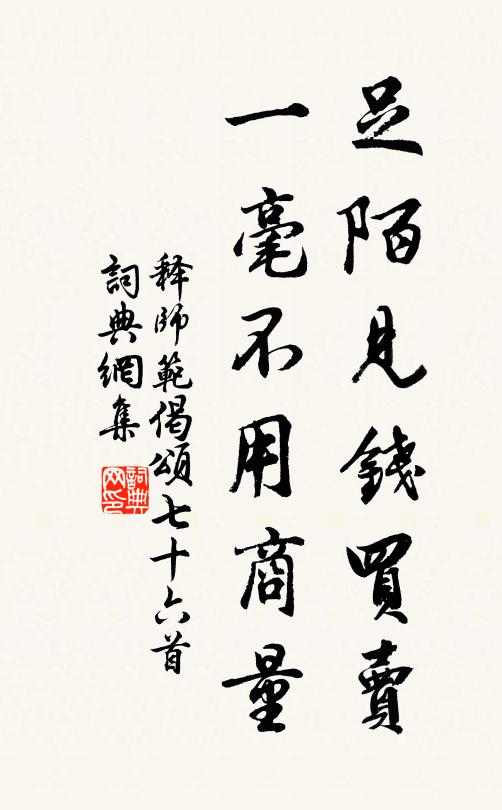 足陌見錢買賣
一毫不用商量
释師範偈頌七十六首
詞典網集
詞典网印